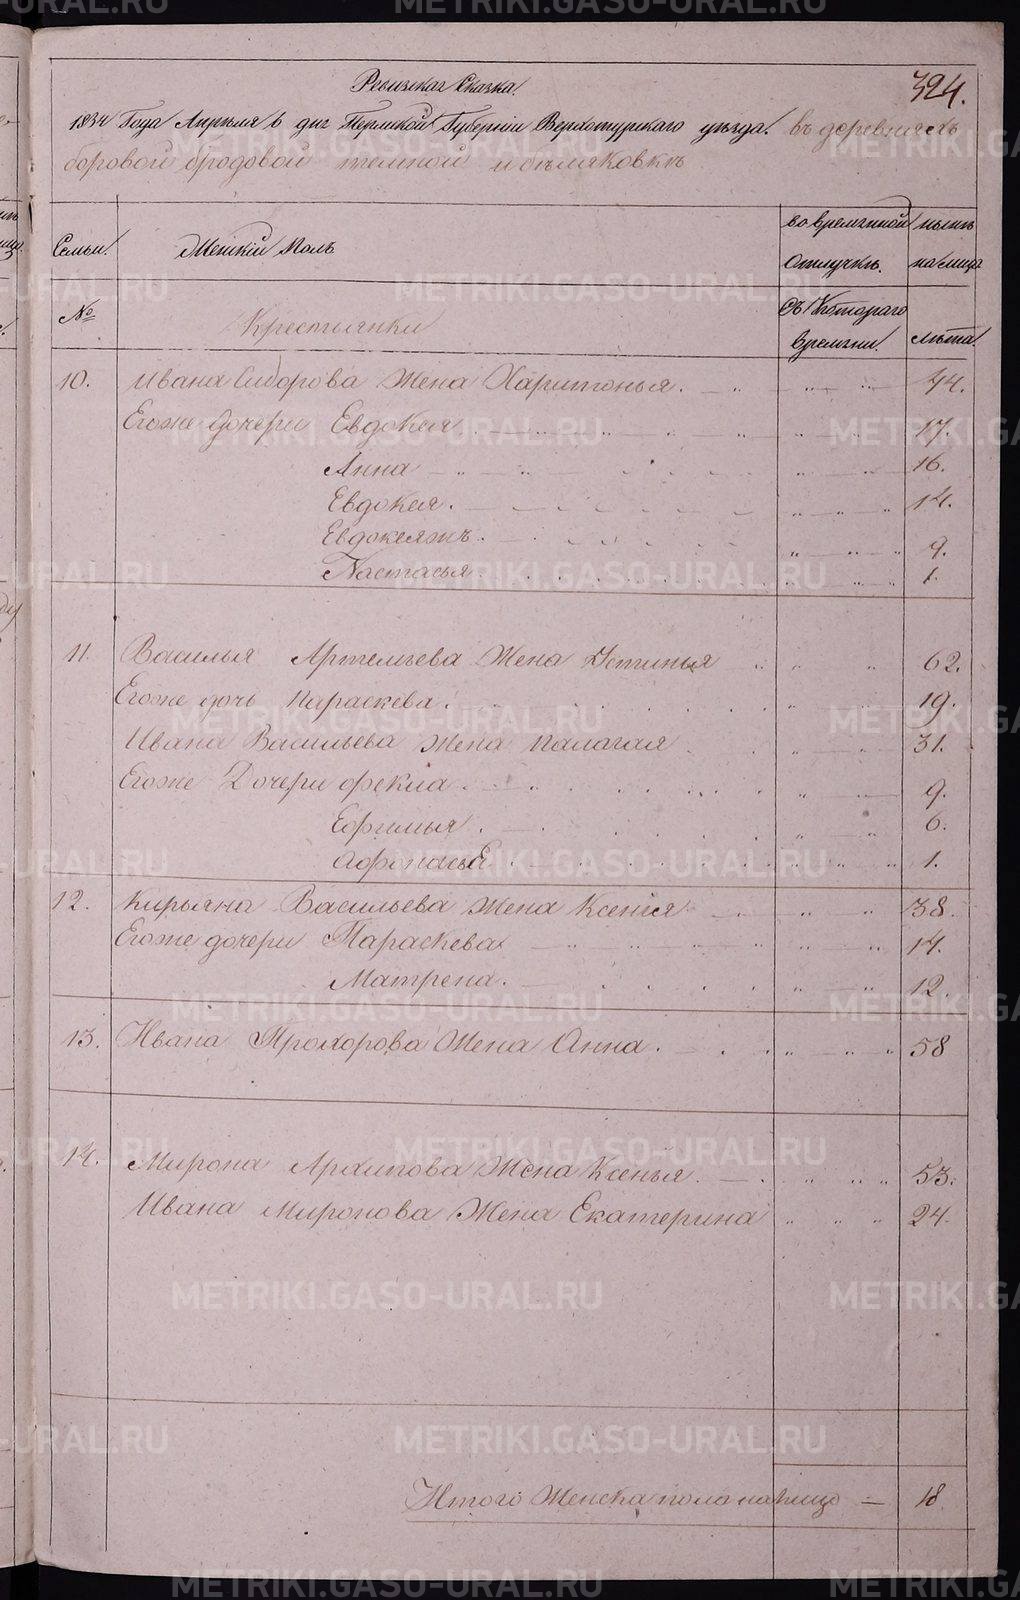 324.
Ревизская Сказка.
1834 Года Апреля 6 дня Пермской Губернии Верхотурскаго уезда. въ деревняхъ
боровой бродовой темной и беляковкъ
Семьи. Женскiй Полъ во временной отлучкъ. ныне на лицо
№ Крестьянки Съ Котораго времени. лета.
10. Ивана Сидорова Жена Харитонья. 44.
Егоже дочери Евдокея 17.
Анна 16.
Евдокея. 14.
Евдокеяжъ. 9.
Настасья. 1.
11. Василья Артемьева Жена Устинья 62.
Егоже дочь параскева. 19.
Ивана Васильева жена палагая 31.
Егоже Дочери фекла. 9.
Ефимья. 6.
Афонасья. 1.
12. Кирьяна Васильева жена Ксения 38.
Егоже дочери Параскева 14.
Матрена. 12.
13. Ивана Прохорова Жена Анна. 58
14. Мирона Архипова Жена Ксенья. 53.
Ивана Миронова Жена Екатерина 24.
Итого Женска пола налицо — 18
METRIKI.GASO-URAL.RU